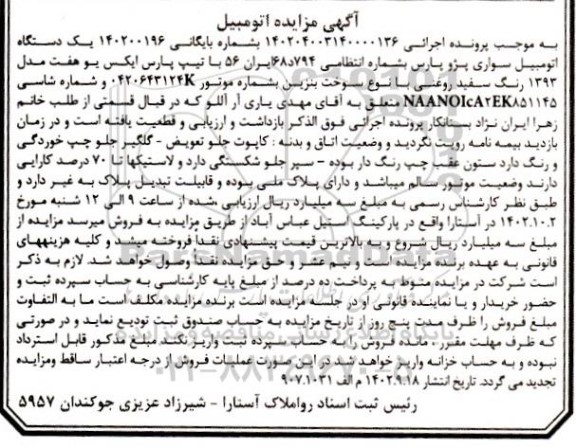 آگهی مزایده اتومبیل
به موجب پرونده اجرائی ۱۴۰۲۰۴۰۰۳۱۴۰۰۰۰۱۳۶ بشماره بایگانی ۱۴۰۲۰۰۱۹۶ یک دستگاه
اتومبیل سواری پژو پارس بشماره انتظامی ۷۹۴د۶۸ایران ۵۶ با تیپ پارس ایکس یو هفت مدل
۱۳۹۳ رنگ سفید روغنی با نوع سوخت بنزین بشماره موتور ۰۴۲۰۶۴۳۱۲۴K و شماره شاسی
NAANO۱cA۲EK۸۵۱۱۴۵ متعلق به آقای مهدی یاری آر اللو که در قبال قسمتی از طلب خانم
زهرا ایران نژاد بستانکار پرونده اجرائی فوق الذکر بازداشت و ارزیابی و قطعیت یافته است و در زمان
بازدید بیمه نامه رویت نگردید و وضعیت اتاق و بدنه : کاپوت جلو تعویض - گلگیر جلو چپ خوردگی
و رنگ دارد ستون عقب چپ رنگ دار بوده – سپر جلو شکستگی دارد و لاستیکها تا ۷۰ درصد کارایی
دارند وضعیت موتور سالم میباشد و دارای پلاک ملی بوده و قابلیت تبدیل پلاک به غیر دارد و
طبق نظر کارشناس رسمی به مبلغ سه میلیارد ریال ارزیابی ،شده از ساعت ۹ الی ۱۲ شنبه مورخ
۱۴۰۲.۱۰.۲ در آستارا واقع در پارکینگ استیل عباس آباد از طریق مزایده به فروش میرسد مزایده از
مبلغ سه میلیارد ریال شروع و به بالاترین قیمت پیشنهادی نقدا فروخته میشد و کلیه هزینههای
قانونی به عهده برنده مزایده است و نیم عشر و حق مزایده نقدا وصول خواهد شد. لازم به ذکر
است شرکت در مزایده منوط به پرداخت ده درصد از مبلغ پایه کارشناسی به حساب سپرده ثبت و
حضور خریدار و یا نماینده قانونی او در جلسه مزایده است برنده مزایده مکلف است ما به التفاوت
مبلغ فروش را ظرف مدت پنج روز از تاریخ مزایده به حساب صندوق ثبت تودیع نماید و در صورتی
که ظرف مهلت مقرر، مانده فروش را به حساب سپرده ثبت واریز نکند مبلغ مذکور قابل استرداد
نبوده و به حساب خزانه واریز خواهد شد در این صورت عملیات فروش از درجه اعتبار ساقط ومزایده
تجدید می گردد. تاریخ انتشار ۱۴۰۲.۹.۱۸ م الف ۹۰۷.۱۰۳۱
رئیس ثبت اسناد رواملاک آستارا - شیرزاد عزیزی جوکندان ۵۹۵۷